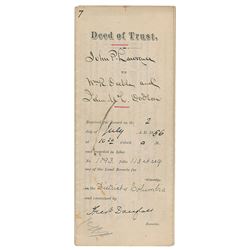 7
Deed of Trust.
John P. Lawrence
TO
Wm. R. Dubbs and
John J. C. Dodson
Received for Record on the 2
day of July A.D. 1886
at 10 o'clock a m. and
recorded in Liber
No. 1193 folio 113 et seq
one of the Land Records for
in the District of Columbia
and examined by
Recorder.